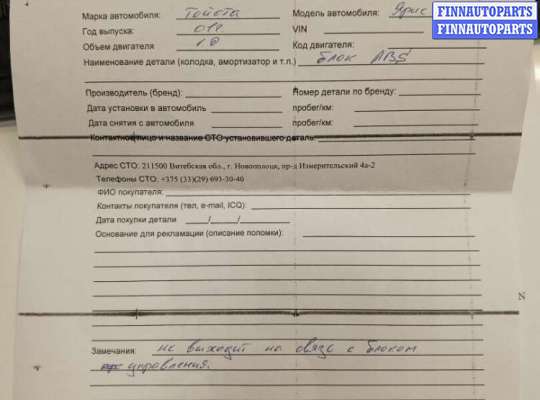 FINNAUTOPARTS
FINNAUTOPARTS
Марка автомобиля: Тойота Модель автомобиля: Ярис
Год выпуска: 011 VIN
Объем двигателя 1.0 Код двигателя:
Наименование детали (колодка, амортизатор и т.п.) блок ABS
Производитель (бренд): Номер детали по бренду:
Дата установки в автомобиль пробег/км:
Дата снятия с автомобиля пробег/км:
Контактное лицо и название СТО установившего деталь:
Адрес СТО: 211500 Витебская обл., г. Новополоцк, пр-д Измерительский 4а-2
Телефоны СТО: +375 (33)(29) 693-30-40
ФИО покупателя:
Контакты покупателя (тел, e-mail, ICQ):
Дата покупки детали ____/____/________
Основание для рекламации (описание поломки):
N
Замечания: не выходит на связь с блоком
управления.